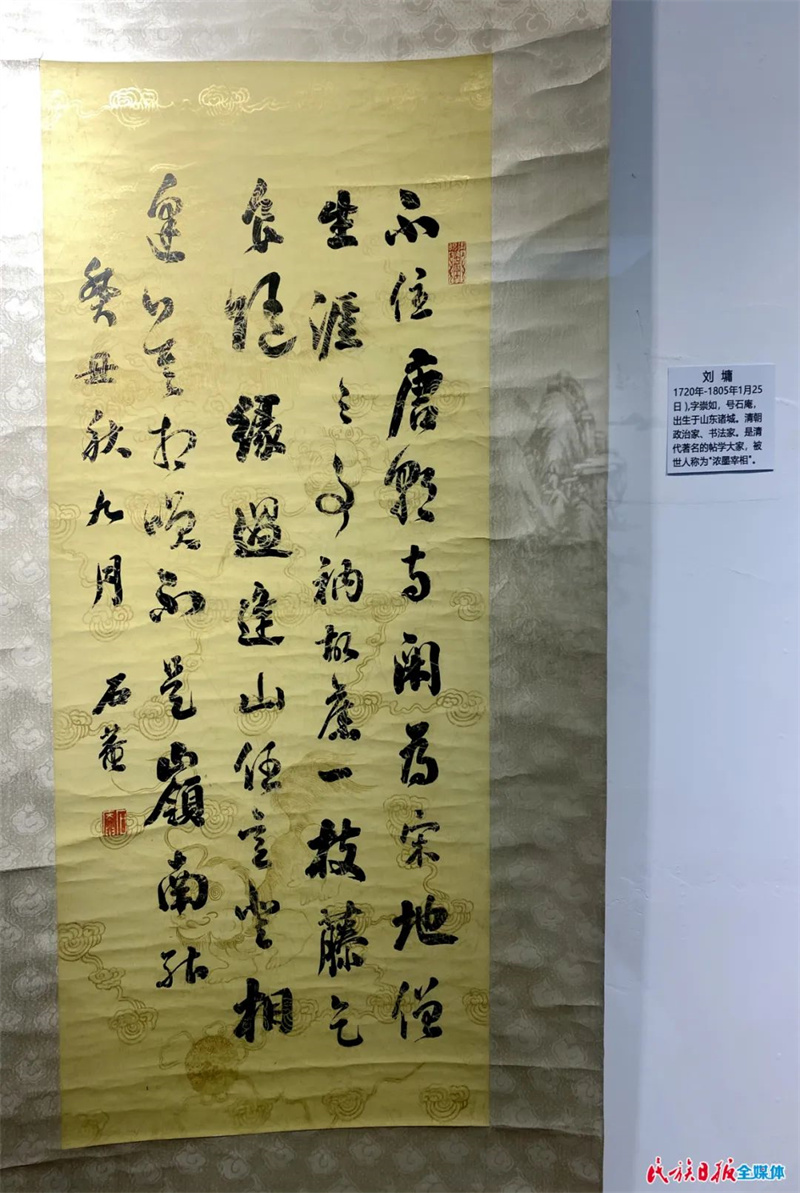 不住唐朝寺閑為宋地僧
生涯三事衲故舊一枝藤乞
食隨緣過逢山任意登相
逢莫相不是嶺南能
癸丑秋九月 石菴
刘 墉
1720年-1805年1月25
日),字崇如，号石庵，
出生于山东诸城。清朝
政治家、书法家。是清
代著名的帖学大家，被
世人称为“浓墨宰相”。
民族日报全媒体